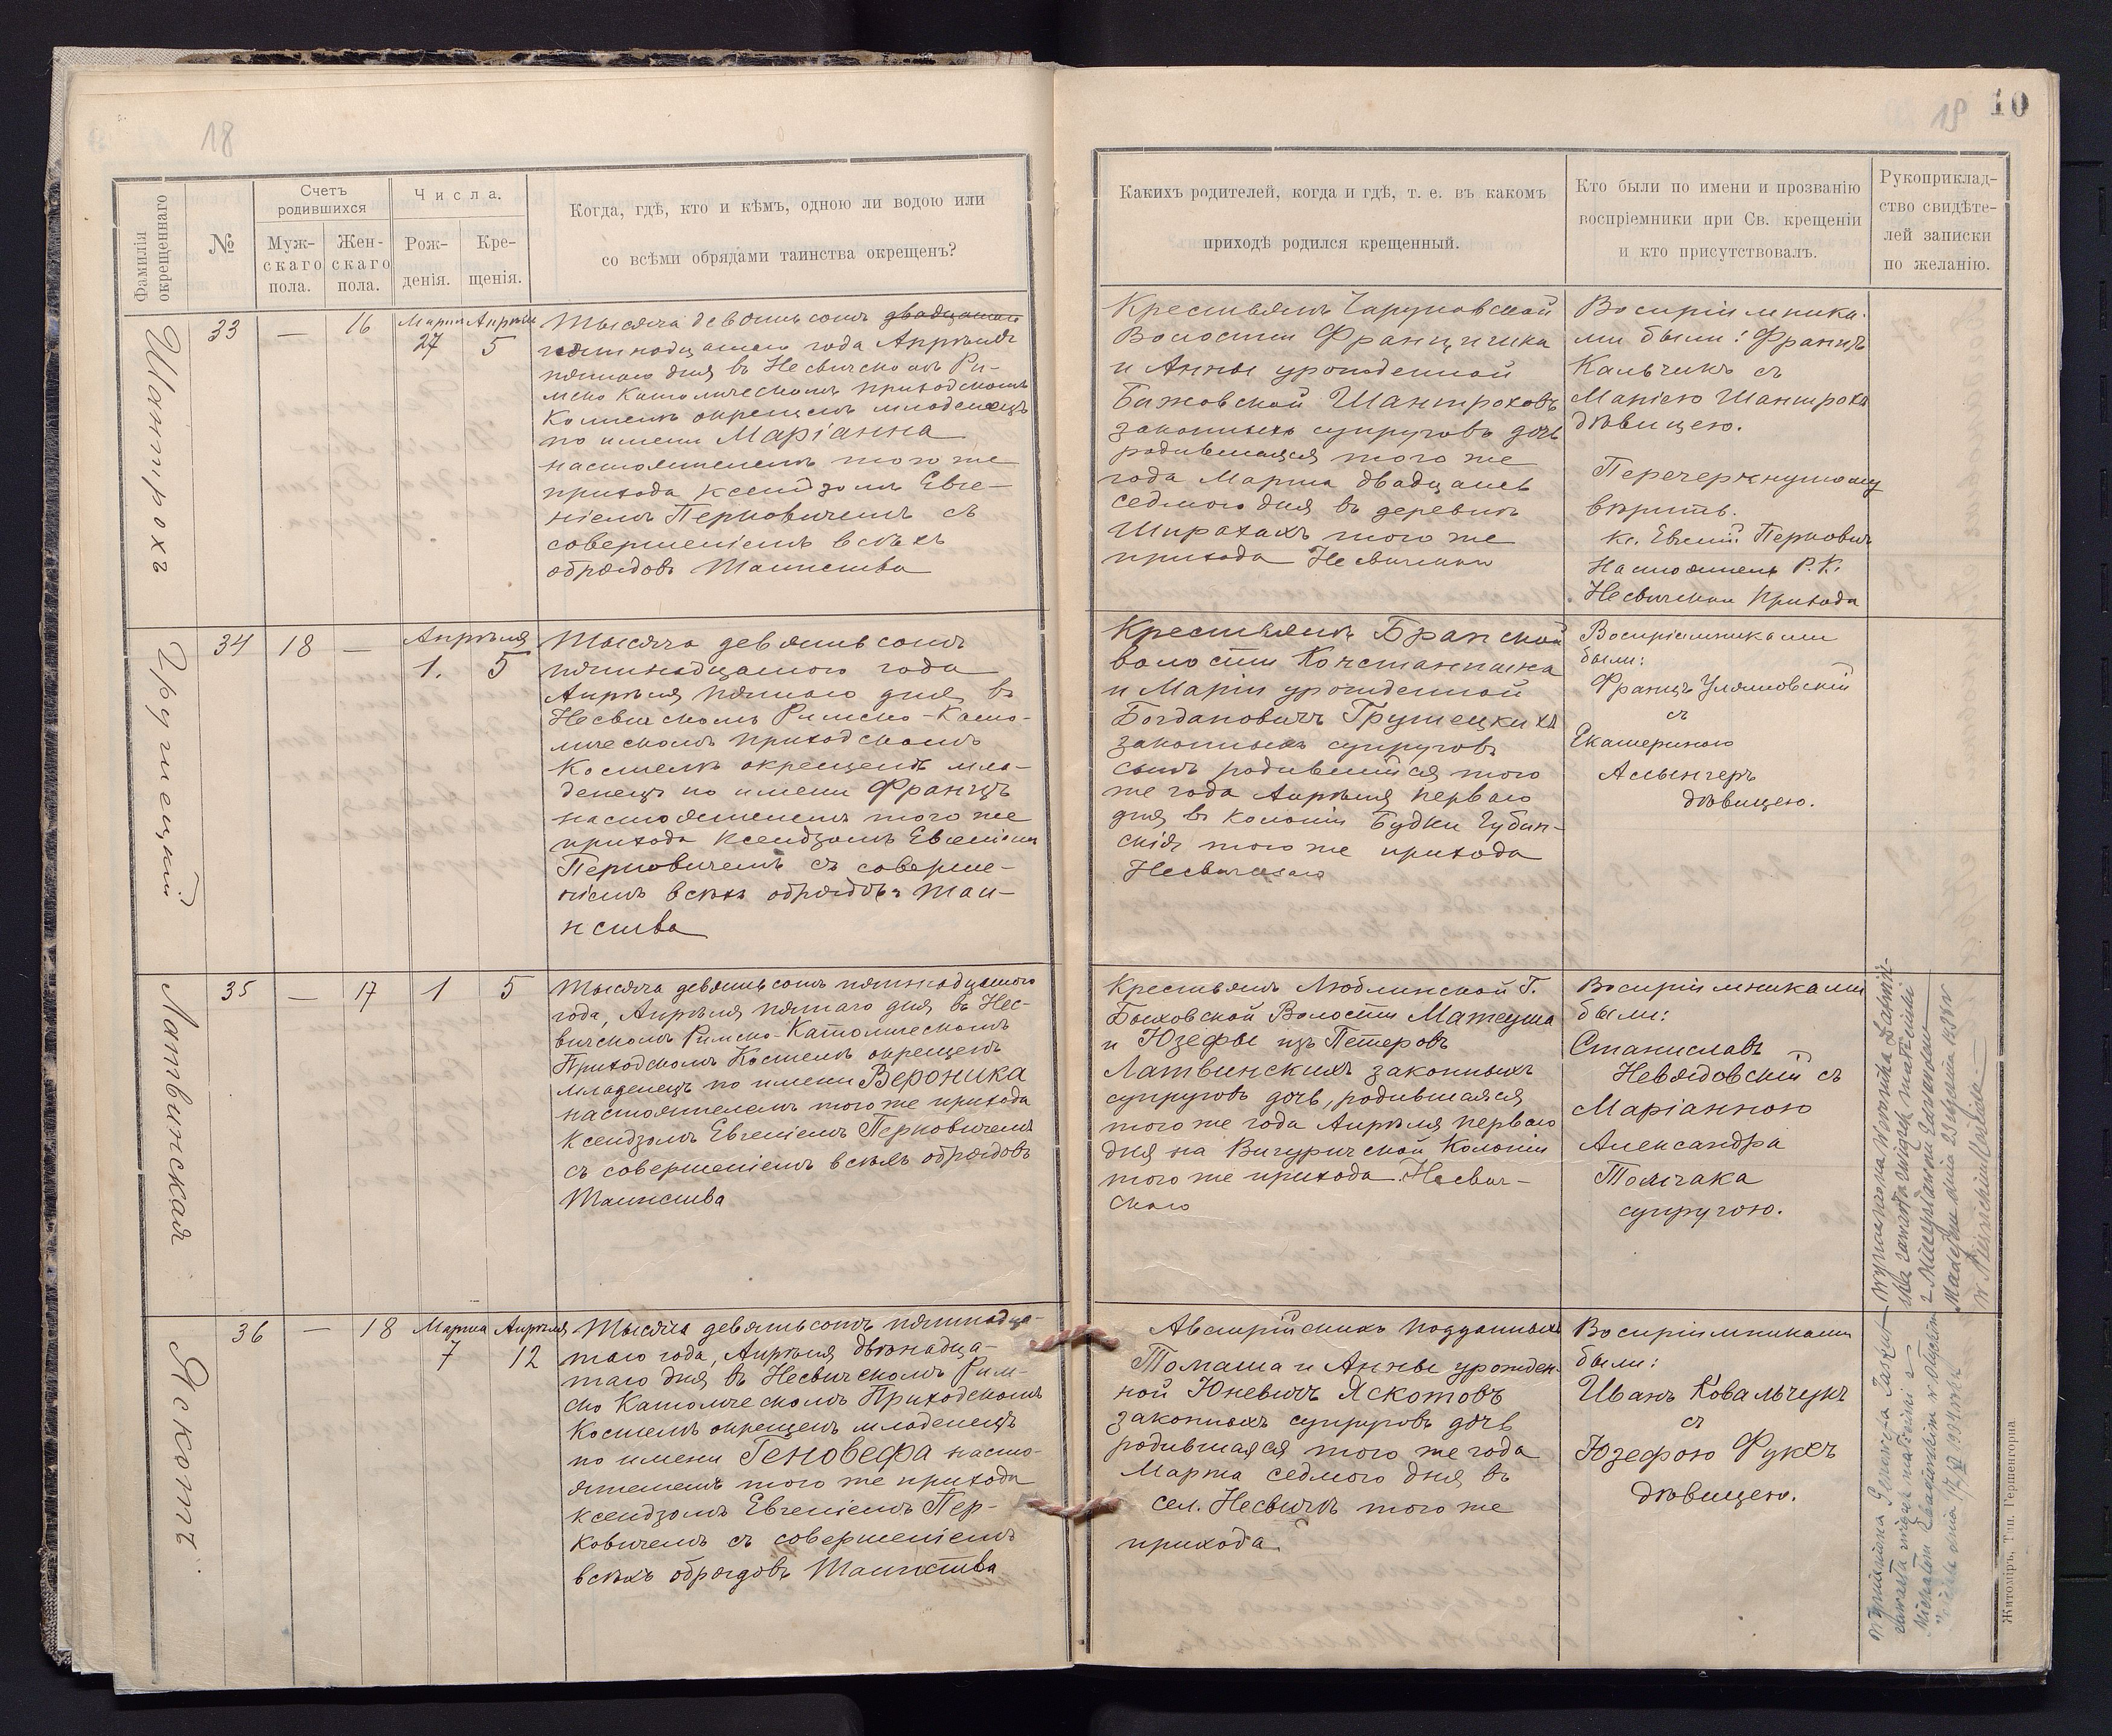 18
Фамилія
окрещеннаго
№
Счетъ
родившихся
Муж-
скаго
пола.
Жен-
скаго
пола.
Числа.
Рож-
денія.
Кре-
щенія.
Когда, гдѣ, кто и кѣмъ, одною ли водою или
со всѣми обрядами таинства окрещенъ?
Шантрохъ
33 — 16
Марта Апрѣля
27 5
Тысяча девятьсотъ двадцатаго
пятнадцатаго года Апрѣля
пятаго дня въ Несвичскомъ Ри-
мско Католическомъ приходскомъ
Костелѣ окрещенъ младенецъ
по имени Маріанна
настоятелемъ того же
прихода ксендзомъ Евге-
ніемъ Перковичемъ съ
совершеніемъ всѣхъ
обрядовъ Таинства
Грушецкій
34 18 —
Апрѣля
1. 5
Тысяча девятьсотъ
пятнадцатаго года
Апрѣля пятаго дня въ
Несвичскомъ Римско-Като-
лическомъ приходскомъ
Костелѣ окрещенъ мла-
денецъ по имени Францъ
настоятелемъ того же
прихода ксендзомъ Евгеніемъ
Перковичемъ съ соверше-
ніемъ всѣхъ обрядовъ Таи-
нства
Латвинская
35 — 17 1 5
Тысяча девятьсотъ пятнадцатого
года, Апрѣля пятаго дня въ Нес-
вичскомъ Римско-Католическомъ
Приходскомъ Костелѣ окрещенъ
младенецъ по имени Вероника
настоятелемъ того же прихода
Ксендзомъ Евгеніемъ Перковичемъ
съ совершеніемъ всѣхъ обрядовъ
Таинства
Яскотъ
36 — 18
Марта Апрѣля
7 12
Тысяча девятьсотъ пятнадца-
таго года, Апрѣля двѣнадца-
таго дня въ Несвичскомъ Рим-
ско Католическомъ Приходскомъ
Костелѣ окрещенъ младенецъ
по имени Геновефа насто-
ятелемъ того же прихода
ксендзомъ Евгеніемъ Пер-
ковичемъ съ совершеніемъ
всѣхъ обрядовъ Таинства
19 10
Какихъ родителей, когда и гдѣ, т. е. въ какомъ
приходѣ родился крещенный.
Кто были по имени и прозванію
воспріемники при Св. крещеніи
и кто присутствовалъ.
Рукоприклад-
ство свидѣте-
лей записки
по желанію.
Крестьянъ Чаруковской
Волости Францишка
и Анны урожденной
Бажовской Шантроховъ
законныхъ супруговъ дочь
родившаяся того же
года Марта двадцать
седмого дня въ деревнѣ
того же
прихода
Воспріемника-
ми были: Францъ
Кальчикъ съ
Маріею Шантроха
дѣвицею.
Перечеркнутому
вѣрить.
Кс. Евгеній Перковичъ
Настоятель Р. К.
Прихода
Крестьянъ
волости Константина
и Маріи урожденной
Богдановичъ Грушецкихъ
законныхъ супруговъ
сынъ родившійся того
же года Апрѣля перваго
дня въ колоніи Будки Губин-
скія того же прихода
Несвичскаго
Воспріемниками
были:
Францъ
съ
Екатериною
дѣвицею.
Крестьянъ Люблинской Г.
Быховской Волости Матеуша
и Юзефы изъ Петеровъ
Латвинскихъ законныхъ
супруговъ дочь, родившаяся
того же года Апрѣля перваго
дня на Колоніи
того же прихода Несвич-
скаго
Воспріемниками
были:
Станиславъ
Невядовскій съ
Маріанною
Александра
Томчака
супругою.
Австрійскихъ подданныхъ
Томаша и Анны урожден-
ной Юневичъ Яскотовъ
законныхъ супруговъ дочь
родившаяся того же года
Марта седмого дня въ
сел. Несвичѣ того же
прихода
Воспріемниками
были:
Иванъ Ковальчукъ
съ
Юзефою Фуксъ
дѣвицею.
Житоміръ, Тип. Гершенгорна